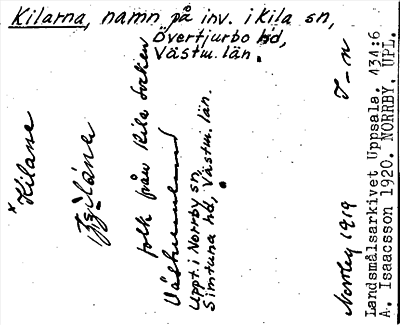 Kilarna, namn på inv. i Kila sn,
Övertjurbo hd,
Västm. län.
* Kilane
folk från Kila socken
Västmanland
Uppt. i Norrby sn,
Simtuna hd, Västm. län.
Norrby 1919 I-n
Landsmålsarkivet Uppsala. 434:6
A. Isaacsson 1920. NORRBY. UPL.